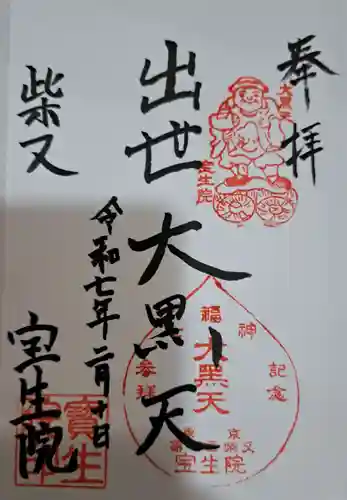 奉拝
大黒天
宝生院
出世大黒天
福神
大黒天
参拝
記念
東京
宝生院
令和七年二月十日
柴又
宝生院
寳生